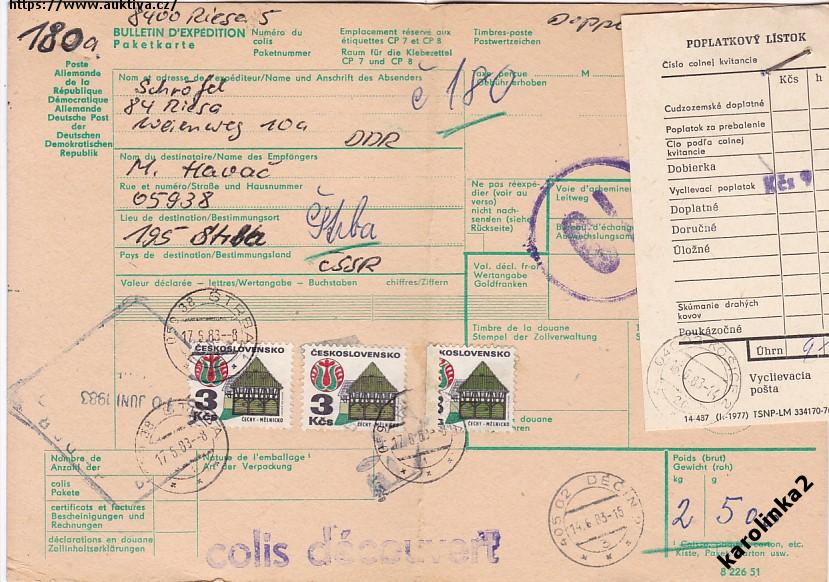 https://www.auktiva.cz/
8400 Riesa 5
180a
BULLETIN D'EXPÉDITION
Paketkarte
Numéro du
colis
Paketnummer
Emplacement réservé aux
étiquettes CP 7 et CP 8
Raum für die Klebezettel
CP 7 und CP 8
Timbres-poste
Postwertzeichen
Poste
Allemande
de la
République
Démocratique
Allemande
Deutsche Post
der
Deutschen
Demokratischen
Republik
Nom et adresse de l'expéditeur/Name und Anschrift des Absenders
Schröfel
84 Riesa
Weinenweg 10a
DDR
č 180
Taxe perçue
Gebühr erhoben
M
Nom du destinataire/Name des Empfängers
M. Havač
Rue et numéro/Straße und Hausnummer
05938
Lieu de destination/Bestimmungsort
195 Štrba
Štrba
Pays de destination/Bestimmungsland
ČSSR
Valeur déclarée - lettres/Wertangabe - Buchstaben
chiffres/Ziffern
Ne pas réexpé-
dier (voir au
verso)
nicht nach-
senden (siehe
Rückseite)
Voie d'achemine
Leitweg
Bureau d'échange
Auswechslungsam
Val. décl. fr-or
Wertangabe
Goldfranken
Timbre de la douane
Stempel der Zollverwaltung
POPLATKOVÝ LÍSTOK
Číslo colnej kvitancie
Kčs
h
Cudzozemské doplatné
Poplatok za prebalenie
Clo podľa colnej
kvitancie
Dobierka
Vyclievací poplatok
Kčs 9
Doplatné
Doručné
Úložné
Skúmanie drahých
kovov
Poukázočné
Úhrn
Vyclievacia
pošta
14-487 (I.-1977) TSNP-LM 334170-76
059 38 ŠTRBA
17.5.83--8
ČESKOSLOVENSKO
3
Kčs
ČECHY - MĚLNICKO
ČESKOSLOVENSKO
3
Kčs
ČECHY - MĚLNICKO
KOSLOVENSKO
3
Kčs
ČECHY - MĚLNICKO
10 JUNI 1983
17.5.83-8
17.5.83-8
droits de douane
Nombre de
Anzahl der
colis
Pakete
certificats et factures
Bescheinigungen und
Rechnungen
déclarations en douane
Zollinhaltserklärungen
Nature de l'emballage¹
Art der Verpackung
405 02 DĚČÍN
14.6.83-16
3
Poids (brut)
Gewicht (roh)
kg
g
¹ Caisse, papier, carton, etc.
Kiste, Papier, Karton usw.
8 226 51
colis découvert
karolinka2